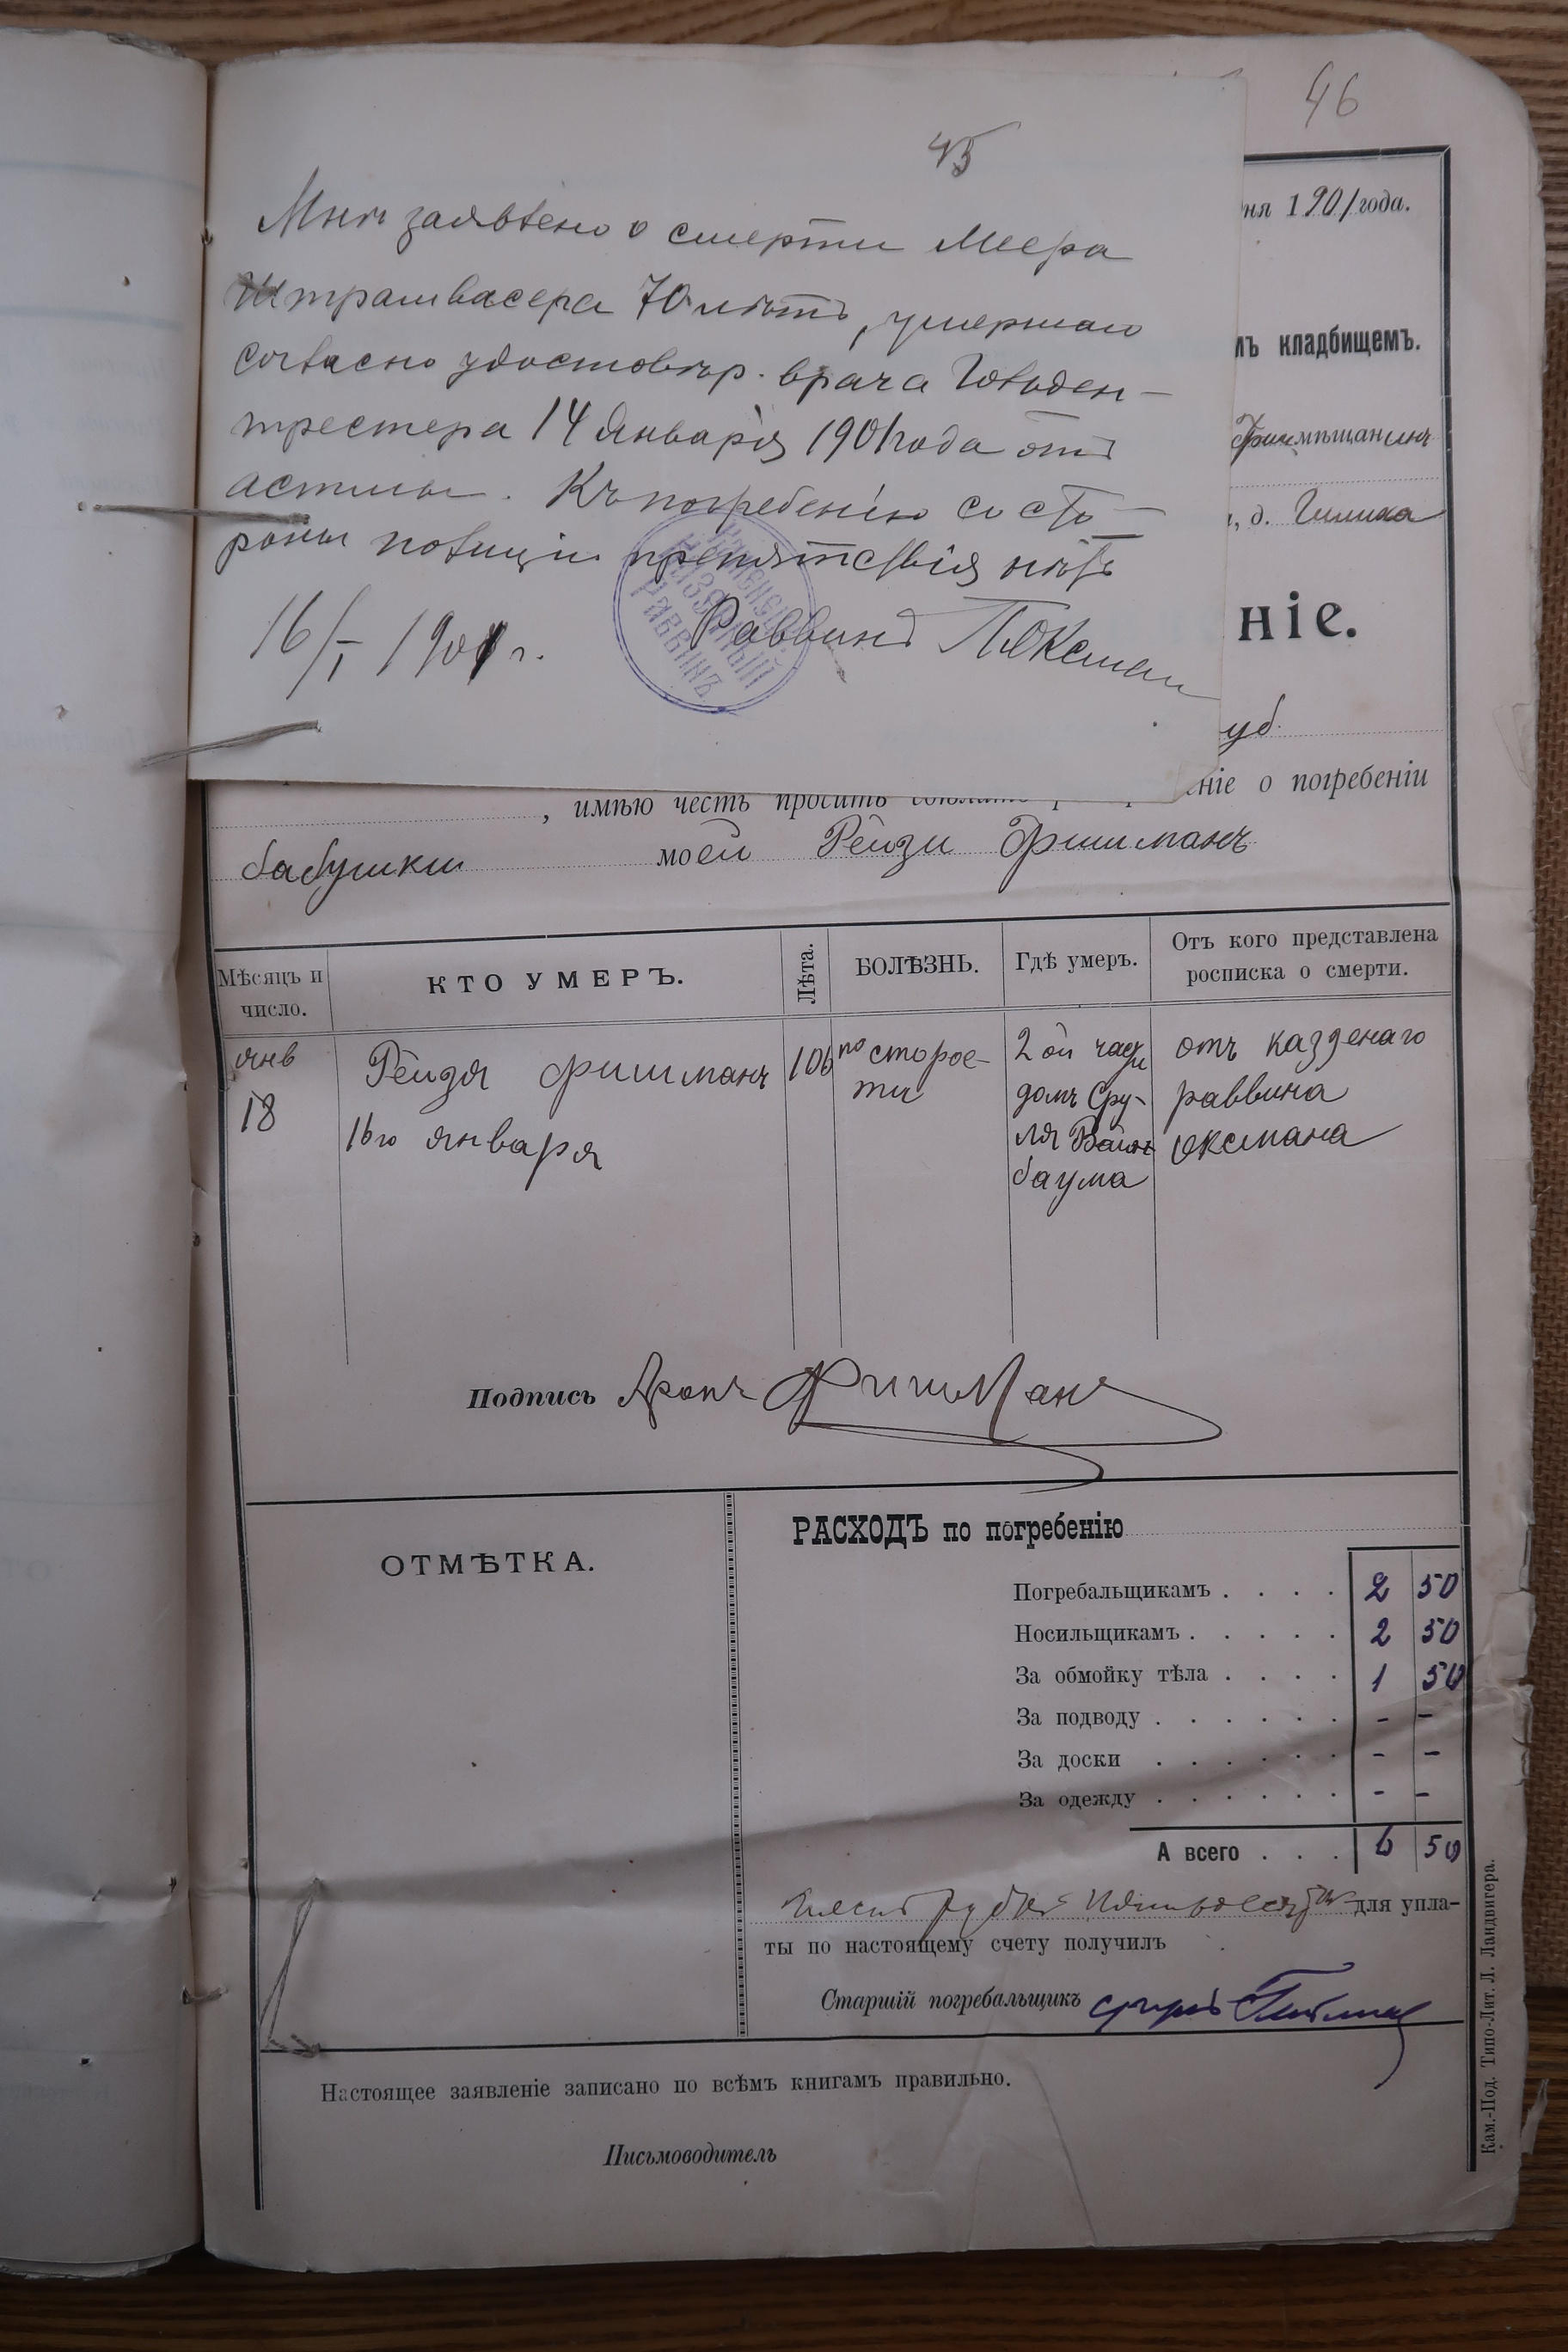 46
45
Мнѣ заявлено о смерти Меера
Штрамвасера 70 лѣтъ, умершаго
согласно удостовѣр. врача Гольден-
трестера 14 Января 1901 года отъ
астмы. Къ погребенію со сто-
роны полиціи препятствія нѣтъ
16/I 1901 г. Раввинъ П. Оксман
КАЗЕННЫЙ
РАВВИНЪ
ня 1901 года.
мъ кладбищемъ.
мѣщанинъ
, д. Гилиха
ніе.
уб
, имѣю честь просить
ніе о погребеніи
бабушки моей Рейзи Фишманъ
Мѣсяцъ и число.
КТО УМЕРЪ.
Лѣта.
БОЛѢЗНЬ.
Гдѣ умеръ.
Отъ кого представлена росписка о смерти.
янв
18
Рейзя Фишманъ
16го января
106
по старос-
ти
2 ой части
домъ Сру-
ля Вайн
баума
отъ казенаго
раввина
Оксмана
Подпись Аронъ Фишманъ
ОТМѢТКА.
РАСХОДЪ по погребенію
Погребальщикамъ . . . . 2 50
Носильщикамъ . . . . . 2 50
За обмойку тѣла . . . . 1 50
За подводу . . . . . . - -
За доски . . . . . . - -
За одежду . . . . . . - -
А всего . . . 6 50
Шесть рублей пятьдесятъ для упла-
ты по настоящему счету получилъ
Старшій погребальщикъ
Настоящее заявленіе записано по всѣмъ книгамъ правильно.
Письмоводитель
Кам.-Под. Типо-Лит. Л. Ландвигера.